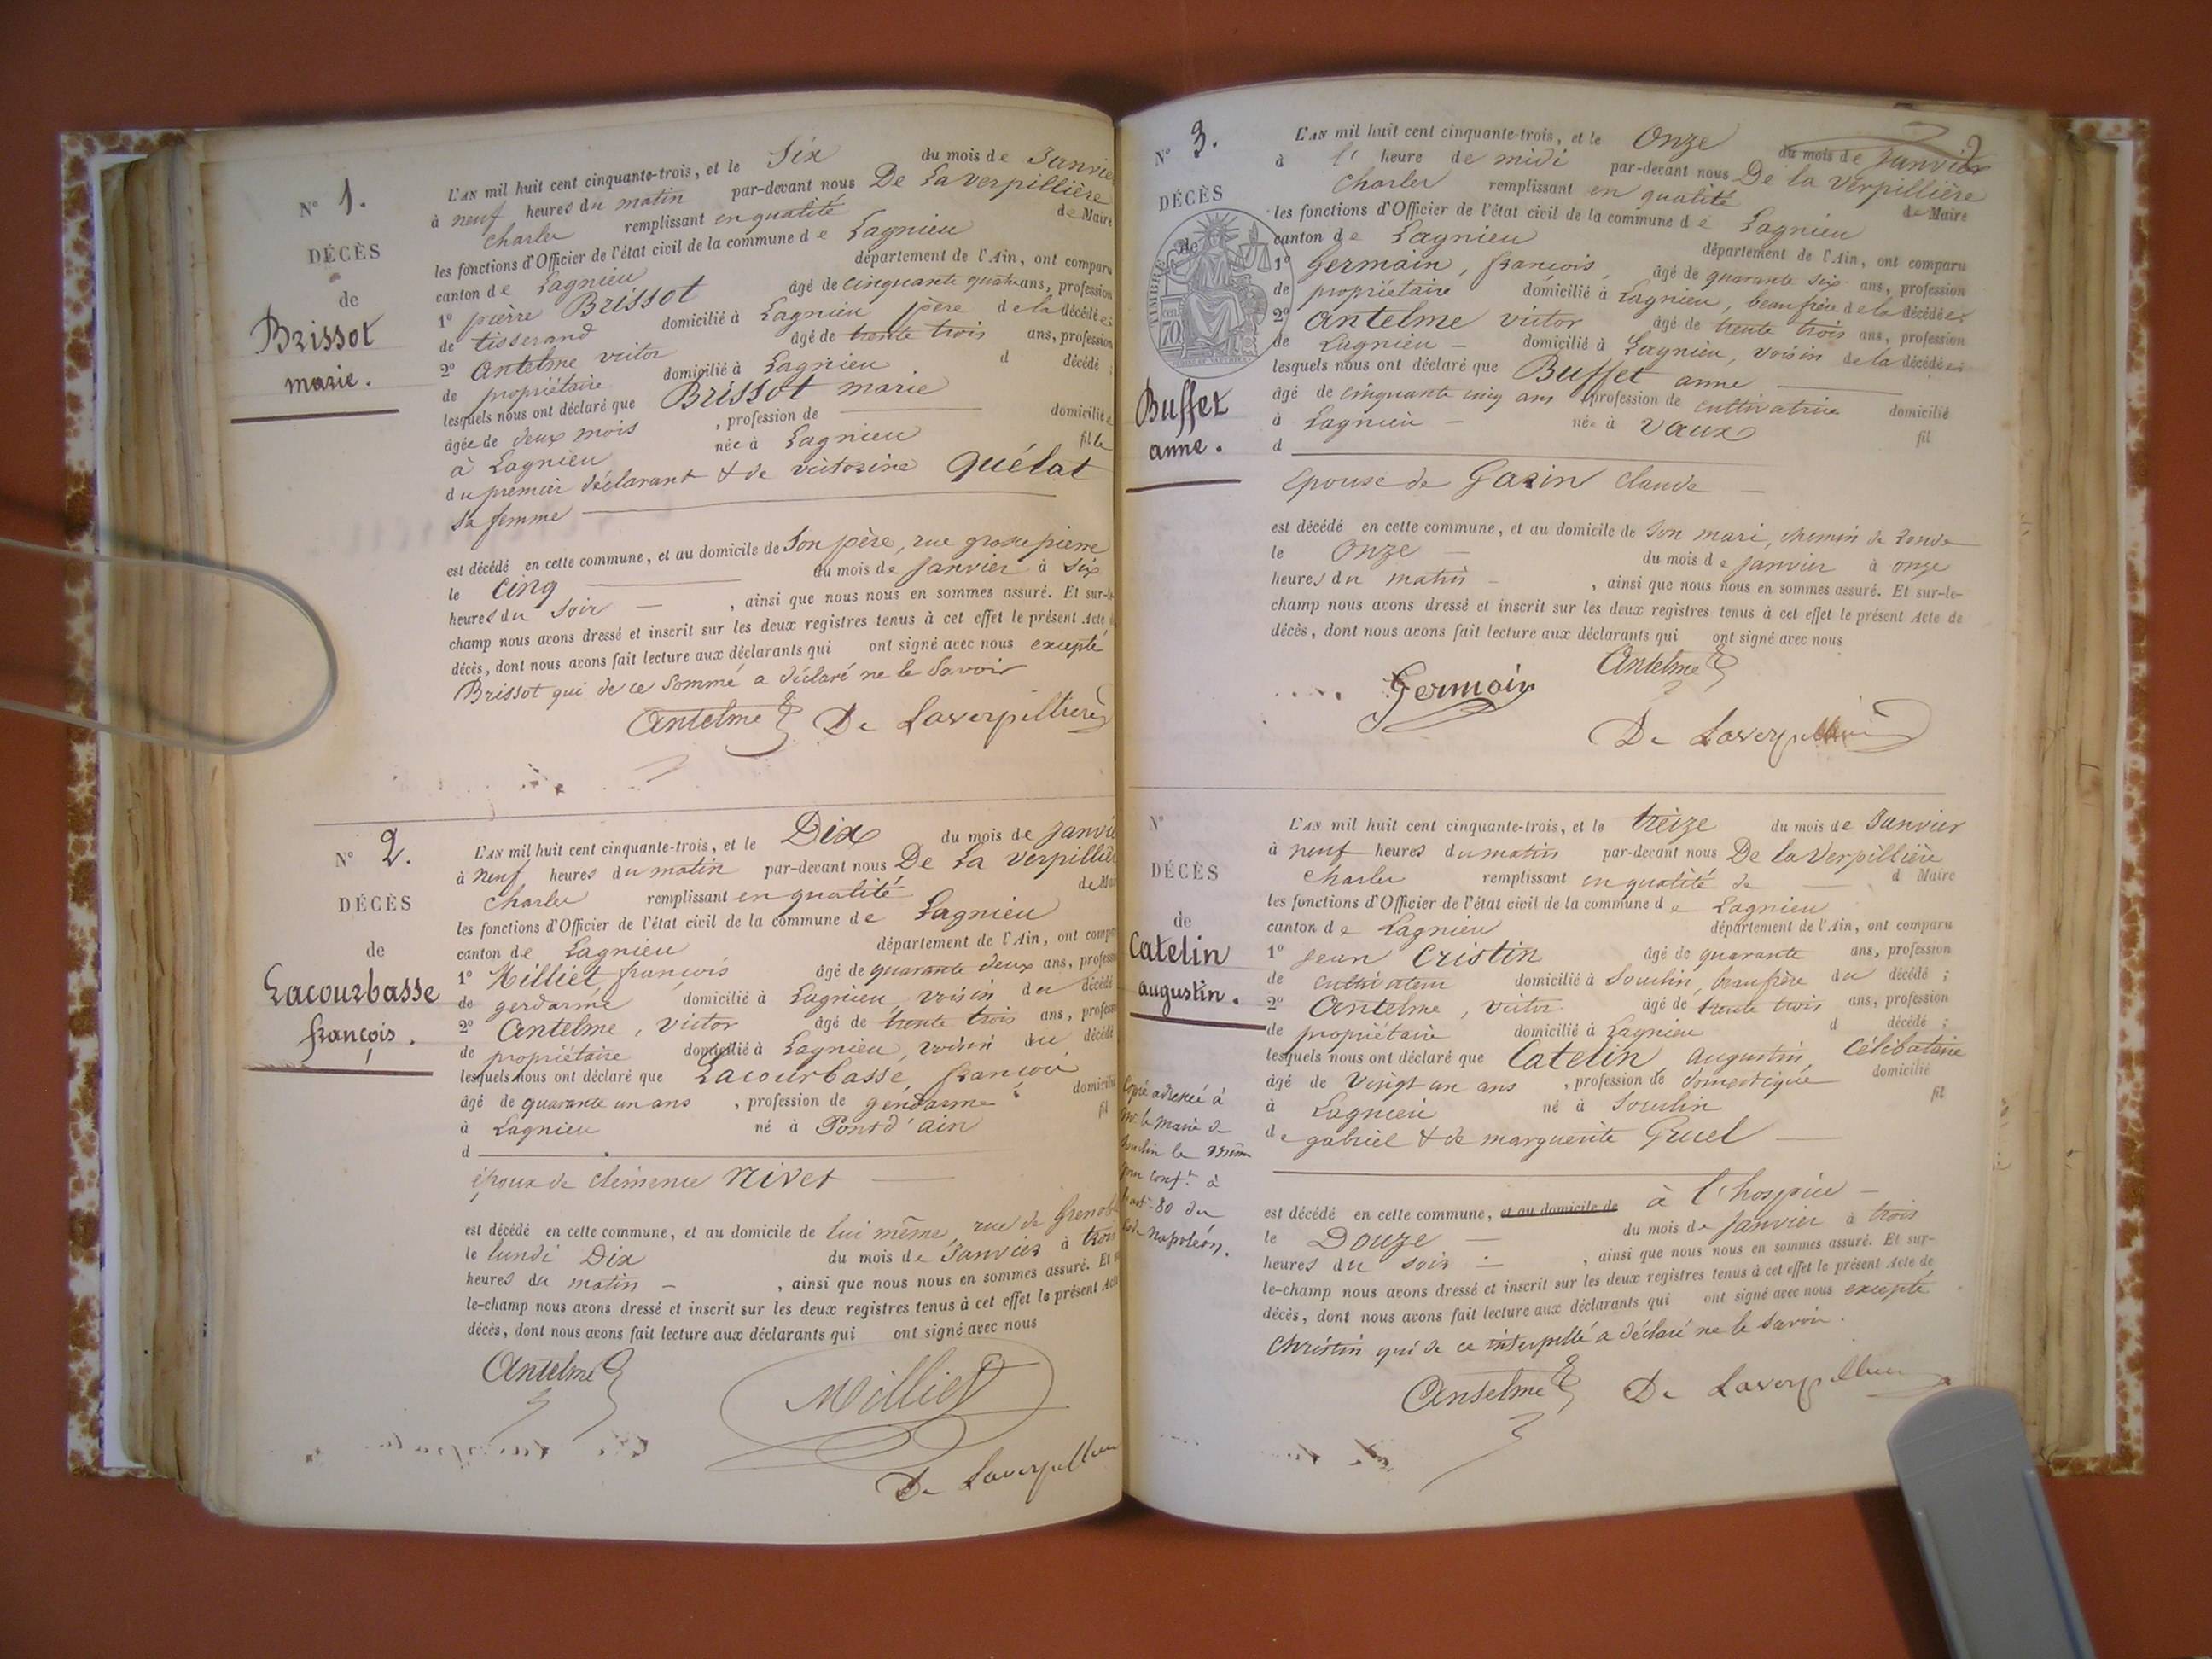 N° 1.
DÉCÈS
de
Brissot
marie.
L'AN mil huit cent cinquante-trois, et le Six du mois de Janvie
à neuf heures du matin par-devant nous De La Verpillière
Charles remplissant en qualité de Maire
les fonctions d'Officier de l'état civil de la commune de Lagnieu
canton de Lagnieu département de l'Ain, ont comparu
1° pierre Brissot âgé de cinquante quatre ans, profession
de tisserand domicilié à Lagnieu père de la décédée;
2° Antelme victor âgé de trente trois ans, profession
de propriétaire domicilié à Lagnieu d décédé;
lesquels nous ont déclaré que Brissot marie
âgée de deux mois , profession de domicilié
à Lagnieu née à Lagnieu fille
du premier déclarant & de victorine Quélat
sa femme
est décédé en cette commune, et au domicile de son père, rue grosse pierre
le Cinq du mois de Janvier à six
heures du soir , ainsi que nous nous en sommes assuré. Et sur-le-
champ nous avons dressé et inscrit sur les deux registres tenus à cet effet le présent Acte
décès, dont nous avons fait lecture aux déclarants qui ont signé avec nous excepté
Brissot qui de ce sommé a déclaré ne le savoir
Antelme De Laverpilliere
N° 2.
DÉCÈS
de
Lacourbasse
françois.
L'AN mil huit cent cinquante-trois, et le Dix du mois de Janvie
à neuf heures du matin par-devant nous De La Verpilliè
Charles remplissant en qualité de Mai
les fonctions d'Officier de l'état civil de la commune de Lagnieu
canton de Lagnieu département de l'Ain, ont compa
1° Milliet françois âgé de quarante deux ans, profess
de gendarme domicilié à Lagnieu, voisin du décédé
2° Antelme, victor âgé de trente trois ans, profess
de propriétaire domicilié à Lagnieu, voisin du décédé
lesquels nous ont déclaré que Lacourbasse, françois
âgé de quarante un ans , profession de gendarme domicilié
à Lagnieu né à Pont d'ain fil
d
époux de clémence Nivet
est décédé en cette commune, et au domicile de lui même, rue de Grenobl
le lundi Dix du mois de Janvier à trois
heures du matin , ainsi que nous nous en sommes assuré. Et
le-champ nous avons dressé et inscrit sur les deux registres tenus à cet effet le présent Acte
décès, dont nous avons fait lecture aux déclarants qui ont signé avec nous
Antelme Milliet
De Laverpilliere
2
N° 3.
DÉCÈS
de
TIMBRE
70
Buffet
anne.
L'AN mil huit cent cinquante-trois, et le Onze du mois de Janvier
à l' heure de midi par-devant nous De la Verpillière
Charles remplissant en qualité de Maire
les fonctions d'Officier de l'état civil de la commune de Lagnieu
canton de Lagnieu département de l'Ain, ont comparu
1° Germain, françois, âgé de quarante six ans, profession
de propriétaire domicilié à Lagnieu, beau frère de la décédée;
2° Antelme victor âgé de trente trois ans, profession
de Lagnieu domicilié à Lagnieu, voisin de la décédée;
lesquels nous ont déclaré que Buffet anne
âgé de cinquante cinq ans profession de cultivatrice domicilié
à Lagnieu née à Vaux fil
d
Epouse de Garin Claude
est décédé en cette commune, et au domicile de son mari, chemin de ronde
le Onze du mois de Janvier à onze
heures du matin , ainsi que nous nous en sommes assuré. Et sur-le-
champ nous avons dressé et inscrit sur les deux registres tenus à cet effet le présent Acte de
décès, dont nous avons fait lecture aux déclarants qui ont signé avec nous
Germain Antelme
De Laverpilliere
N°
DÉCÈS
de
Catelin
augustin.
L'AN mil huit cent cinquante-trois, et le treize du mois de Janvier
à neuf heures du matin par-devant nous De la Verpillière
Charles remplissant en qualité de d Maire
les fonctions d'Officier de l'état civil de la commune de Lagnieu
canton de Lagnieu département de l'Ain, ont comparu
1° Jean Cristin âgé de quarante ans, profession
de cultivateur domicilié à Souclin, beau frère du décédé;
2° Antelme, victor âgé de trente trois ans, profession
de propriétaire domicilié à Lagnieu d décédé;
lesquels nous ont déclaré que Catelin Augustin, Célibataire
âgé de Vingt un ans , profession de domestique domicilié
à Lagnieu né à Souclin fil
de gabriel & de marguerite Gruel
est décédé en cette commune, et au domicile de à l'hospice
le Douze du mois de Janvier à trois
heures du soir , ainsi que nous nous en sommes assuré. Et sur-
le-champ nous avons dressé et inscrit sur les deux registres tenus à cet effet le présent Acte de
décès, dont nous avons fait lecture aux déclarants qui ont signé avec nous excepté
Christin qui de ce interpellé a déclaré ne le savoir.
Antelme De Laverpilliere
Copie adressée à
Mr. le Maire de
Souclin le
pour conft. à
l'art. 80 du
Code Napoléon.